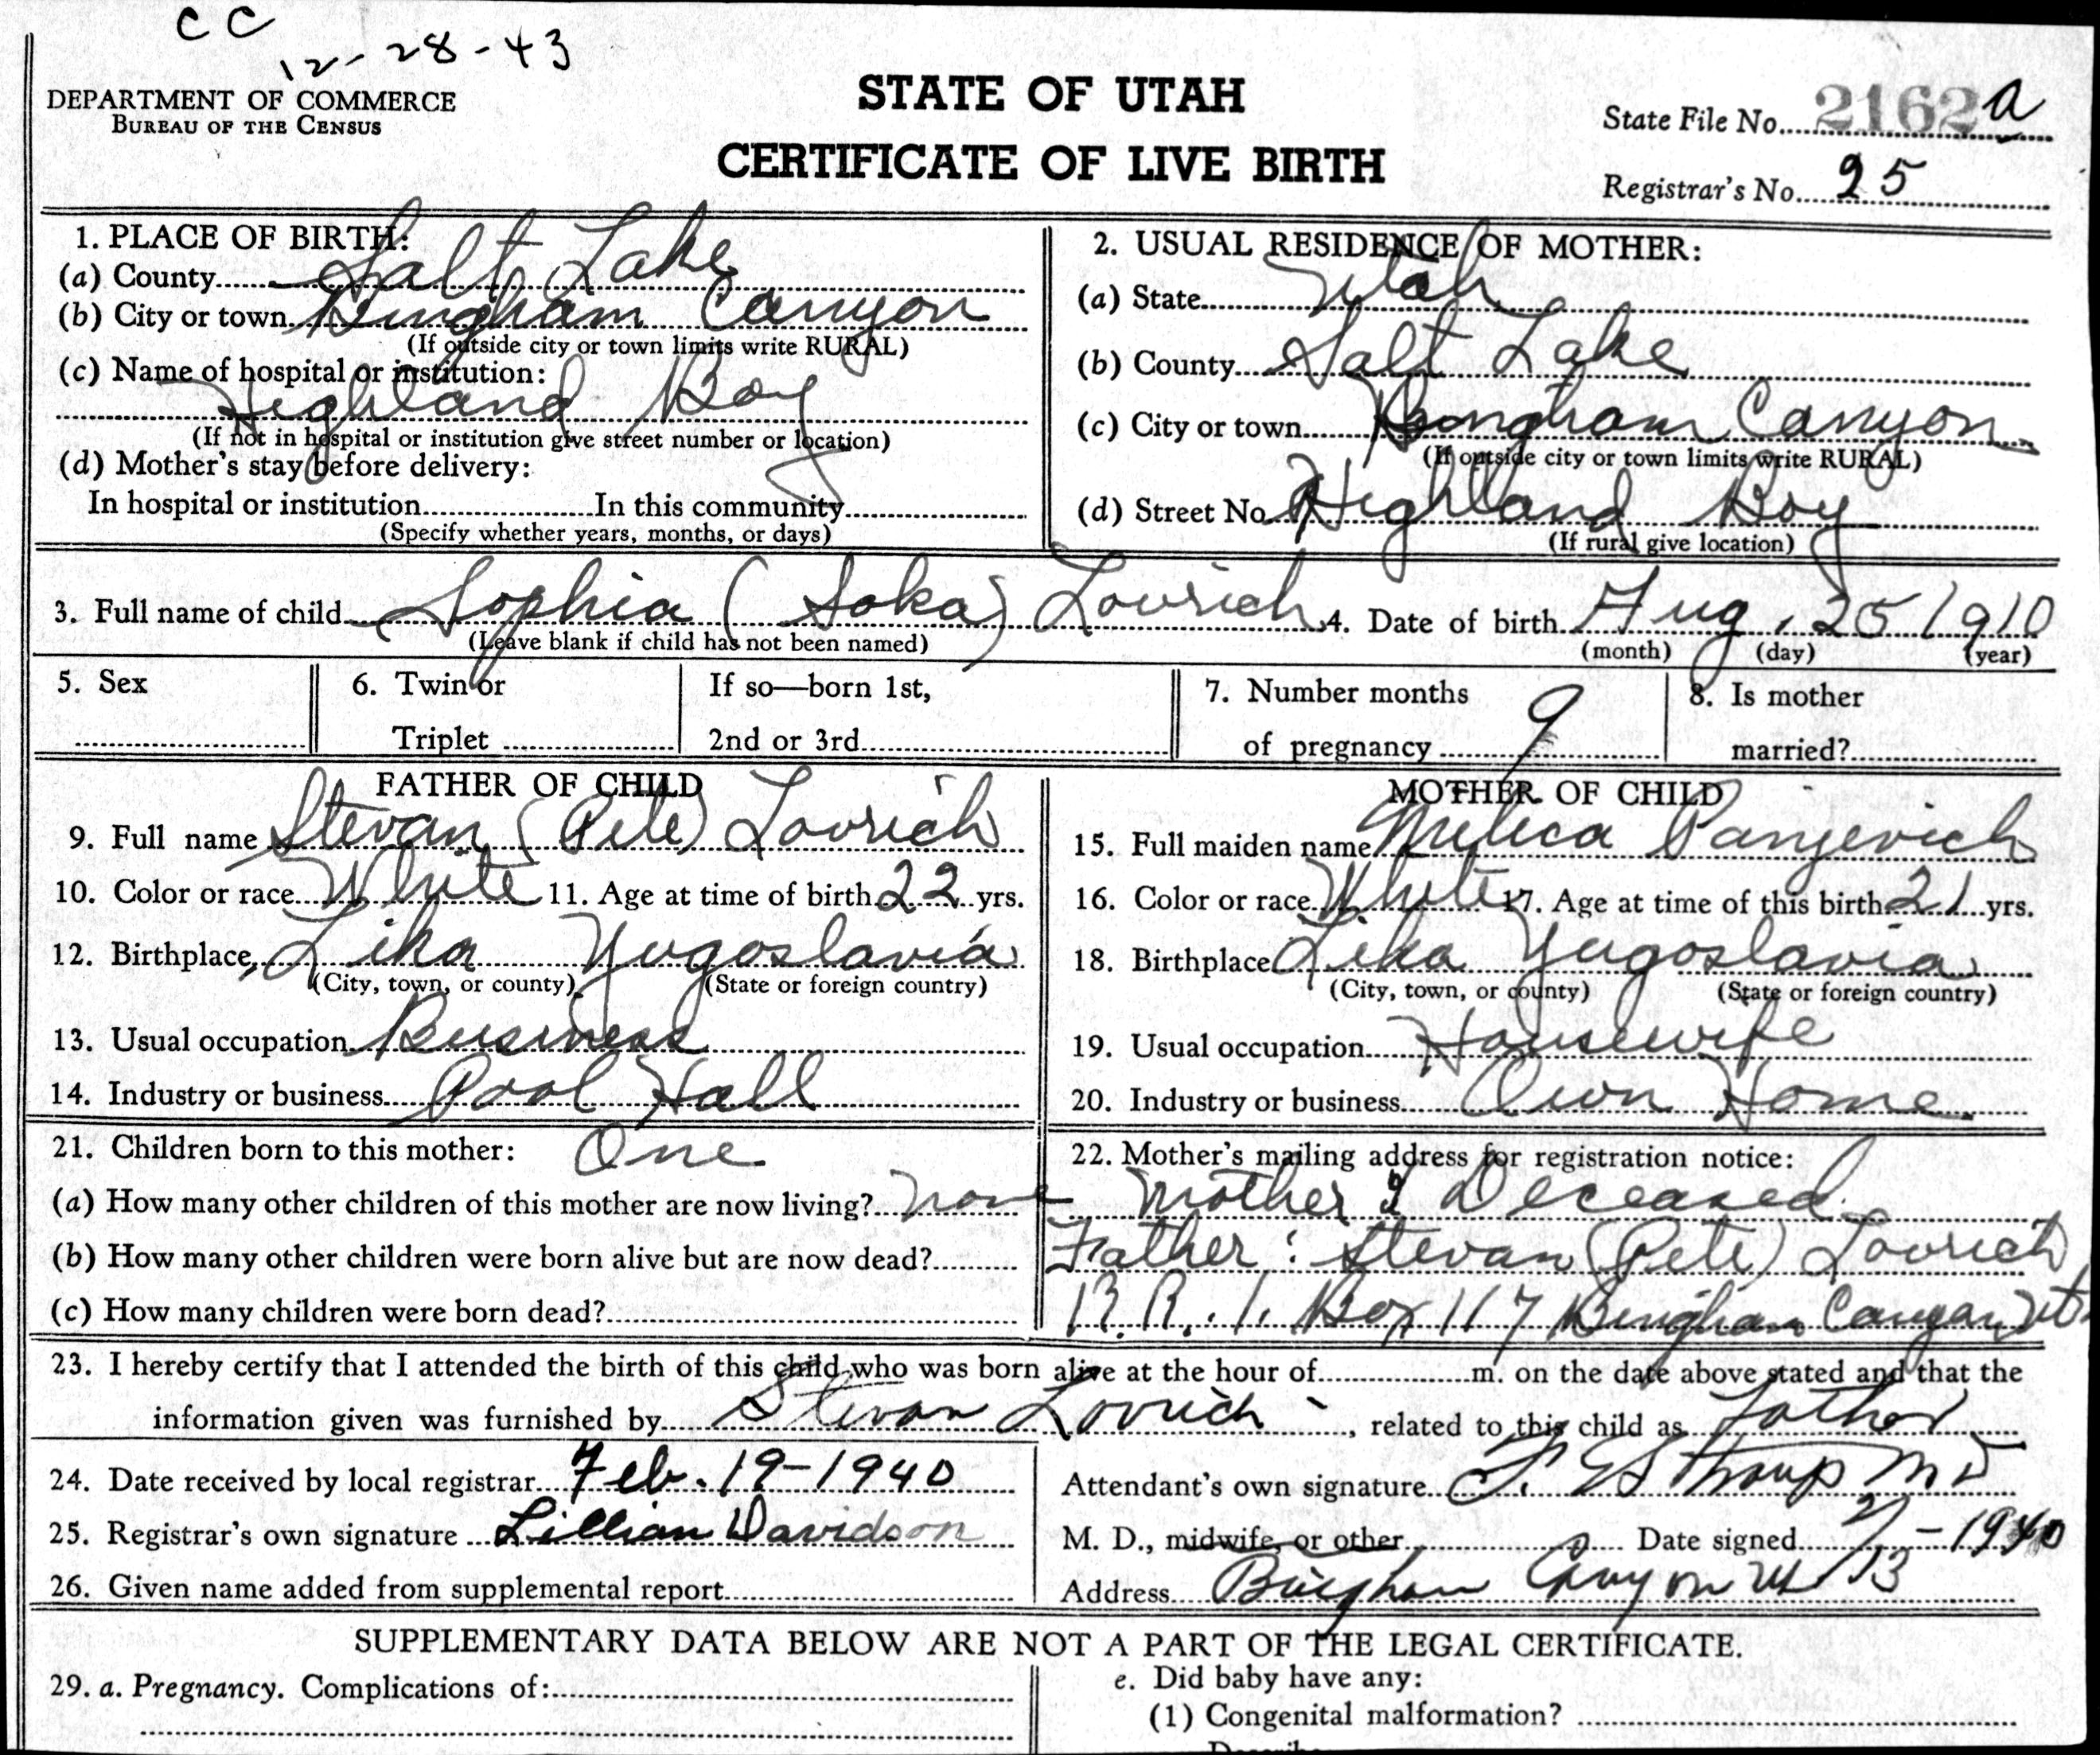 CC
12-28-43
DEPARTMENT OF COMMERCE
BUREAU OF THE CENSUS
STATE OF UTAH
CERTIFICATE OF LIVE BIRTH
State File No. 2162 a
Registrar's No. 25
1. PLACE OF BIRTH:
(a) County Salt Lake
(b) City or town Bingham Canyon
(If outside city or town limits write RURAL)
(c) Name of hospital or institution:
Highland Boy
(If not in hospital or institution give street number or location)
(d) Mother's stay before delivery:
In hospital or institution In this community
(Specify whether years, months, or days)
2. USUAL RESIDENCE OF MOTHER:
(a) State Utah
(b) County Salt Lake
(c) City or town Bingham Canyon
(If outside city or town limits write RURAL)
(d) Street No. Highland Boy
(If rural give location)
3. Full name of child Sophia (Soka) Lovrich 4. Date of birth Aug. 25 1910
(Leave blank if child has not been named) (month) (day) (year)
5. Sex 6. Twin or If so—born 1st, 7. Number months 8. Is mother
Triplet 2nd or 3rd of pregnancy 9 married?
FATHER OF CHILD
9. Full name Stevan (Pete) Lovrich
10. Color or race White 11. Age at time of birth 22 yrs.
12. Birthplace, Lika Yugoslavia
(City, town, or county) (State or foreign country)
13. Usual occupation Business
14. Industry or business Pool Hall
MOTHER OF CHILD
15. Full maiden name Milica Panjevich
16. Color or race White 17. Age at time of this birth 21 yrs.
18. Birthplace Lika Yugoslavia
(City, town, or county) (State or foreign country)
19. Usual occupation Housewife
20. Industry or business Own Home
21. Children born to this mother: One
(a) How many other children of this mother are now living? None
(b) How many other children were born alive but are now dead?
(c) How many children were born dead?
22. Mother's mailing address for registration notice:
Mother Deceased
Father: Stevan (Pete) Lovrich
R.R. 1. Box 117 Bingham Canyon, Ut.
23. I hereby certify that I attended the birth of this child who was born alive at the hour of m. on the date above stated and that the
information given was furnished by Stevan Lovrich, related to this child as Father
24. Date received by local registrar Feb. 19-1940
25. Registrar's own signature Lillian Davidson
26. Given name added from supplemental report
Attendant's own signature F. E. Straup M D
M. D., midwife, or other Date signed 2/13-1940
Address Bingham Canyon Ut
SUPPLEMENTARY DATA BELOW ARE NOT A PART OF THE LEGAL CERTIFICATE.
29. a. Pregnancy. Complications of:
e. Did baby have any:
(1) Congenital malformation?